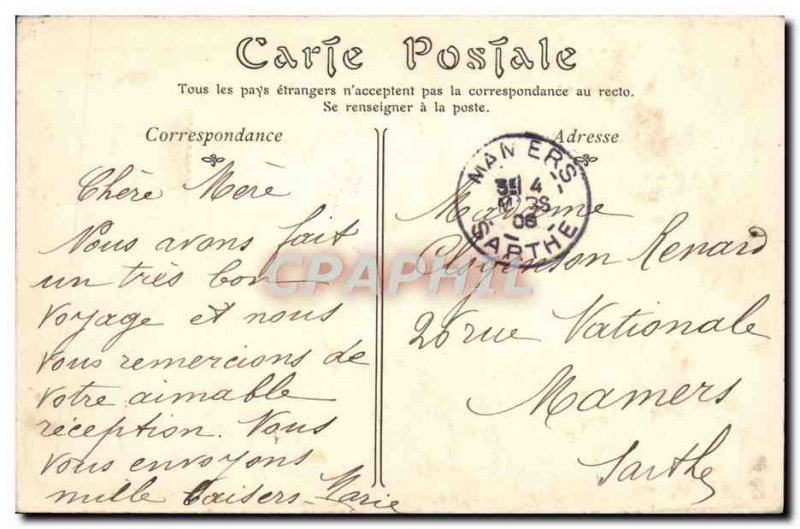 Carte Postale
Tous les pays étrangers n'acceptent pas la correspondance au recto.
Se renseigner à la poste.
Correspondance
Adresse
Chère Mère
Nous avons fait
un très bon
voyage et nous
vous remercions de
votre aimable
réception. Nous
vous envoyons
mille baisers - Marie
MAMERS
3E 4
MARS
06
SARTHE
Madame
Renard
26 rue Nationale
Mamers
Sarthe
CPAPHIL